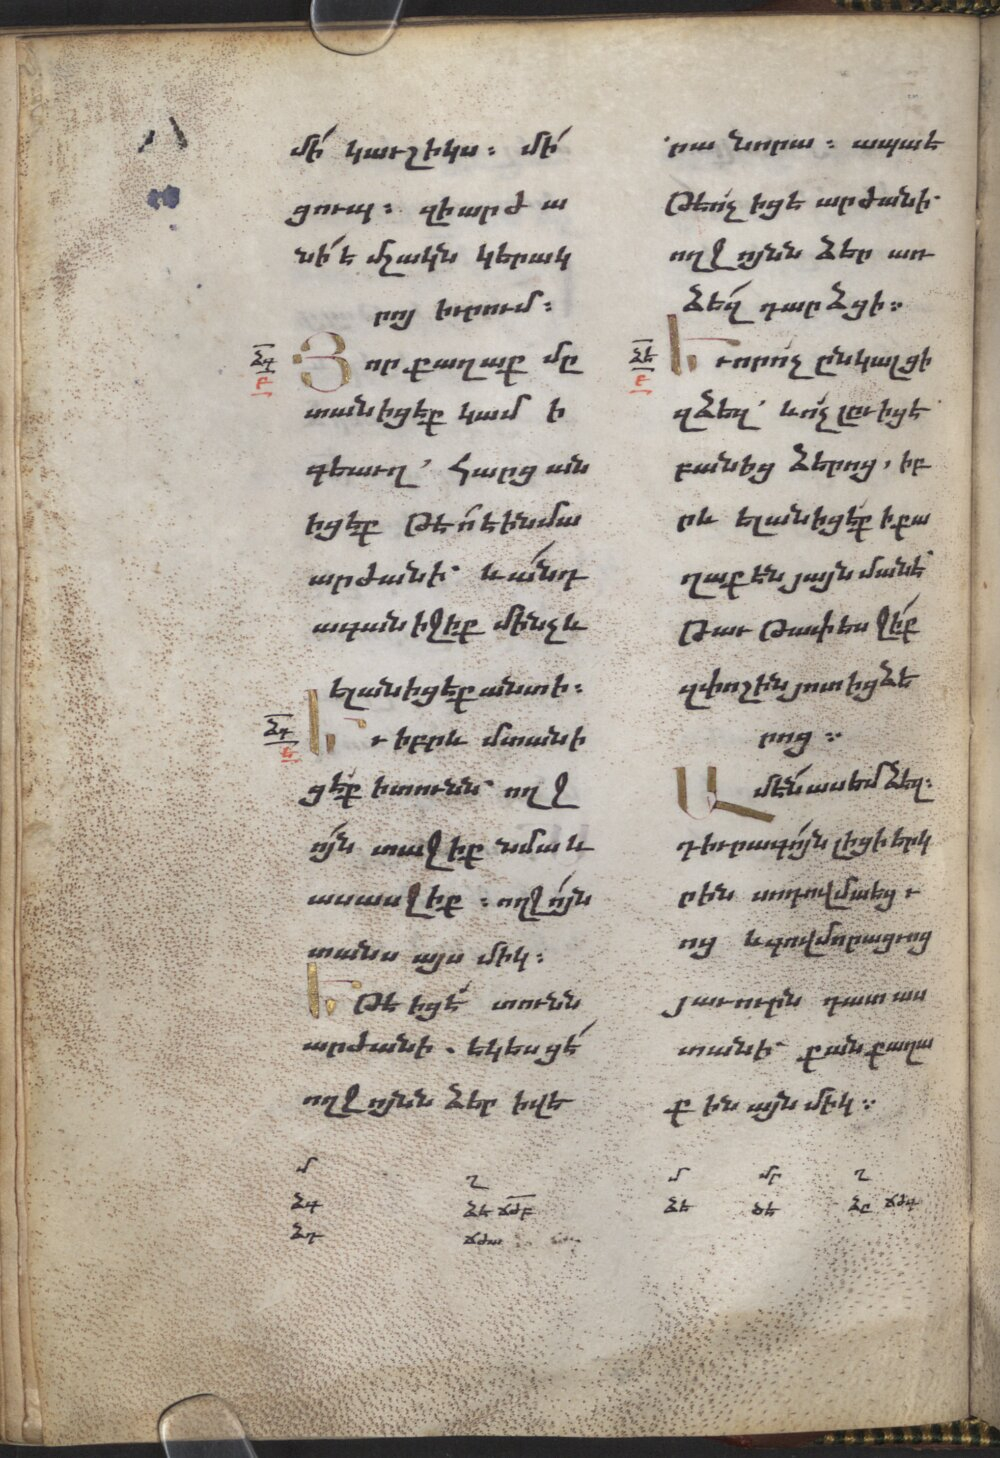 մի՛ կաւշիկս։ մի՛
ցուպ։ զի արժ ա
նի՛ է մշակն կերակ
րոյ իւրում։
ՁԳ
Բ
Յոր քաղաք մը
տանիցէք կամ ի
գեաւղ՝ հարց ան
իցէք թէ ո՛ է ի նմա
արժանի՝ և ա՛նդ
ագանիջիք մինչև
ելանիցէք անտի։
ՁԴ
Ե
Եւ իբրև մտանի
ցէք ի տունն՝ ողջ
ո՛յն տաջիք նմա և
ասասջիք։ ողջո՛յն
տանս այս միկ։
Եթե իցէ՛ տունն
արժանի. եկեսցէ՛
ողջոյնն ձեր ի վե
րա նորա։ ապա է
թե ո՛չ իցէ արժանի՝
ողջոյնն ձեր առ
ձե՛զ դարձցի։
ՁԵ
Բ
Եւ որ ո՛չ ընկալցի
զձեզ՝ և ո՛չ լըւիցէ
բանից ձերոց, իբ
րև ելանիցէք ի քա
ղաքէն յայնմանէ՝
թաւթափեսջի՛ք
զփոշին յոտից ձե
րոց։
Ամէն ասեմ ձեզ։
դիւրագո՛յն լիցի երկ
րին սոդովմաեց ւ
ոց և գովմորացւոց
յաւուրն դատաս
տանի՝ քան քաղա
քին այնմիկ։
մ ղ մ մր ղ
ձգ ձե ճժբ ձե ծե ձը ճժգ
ձդ ճժա